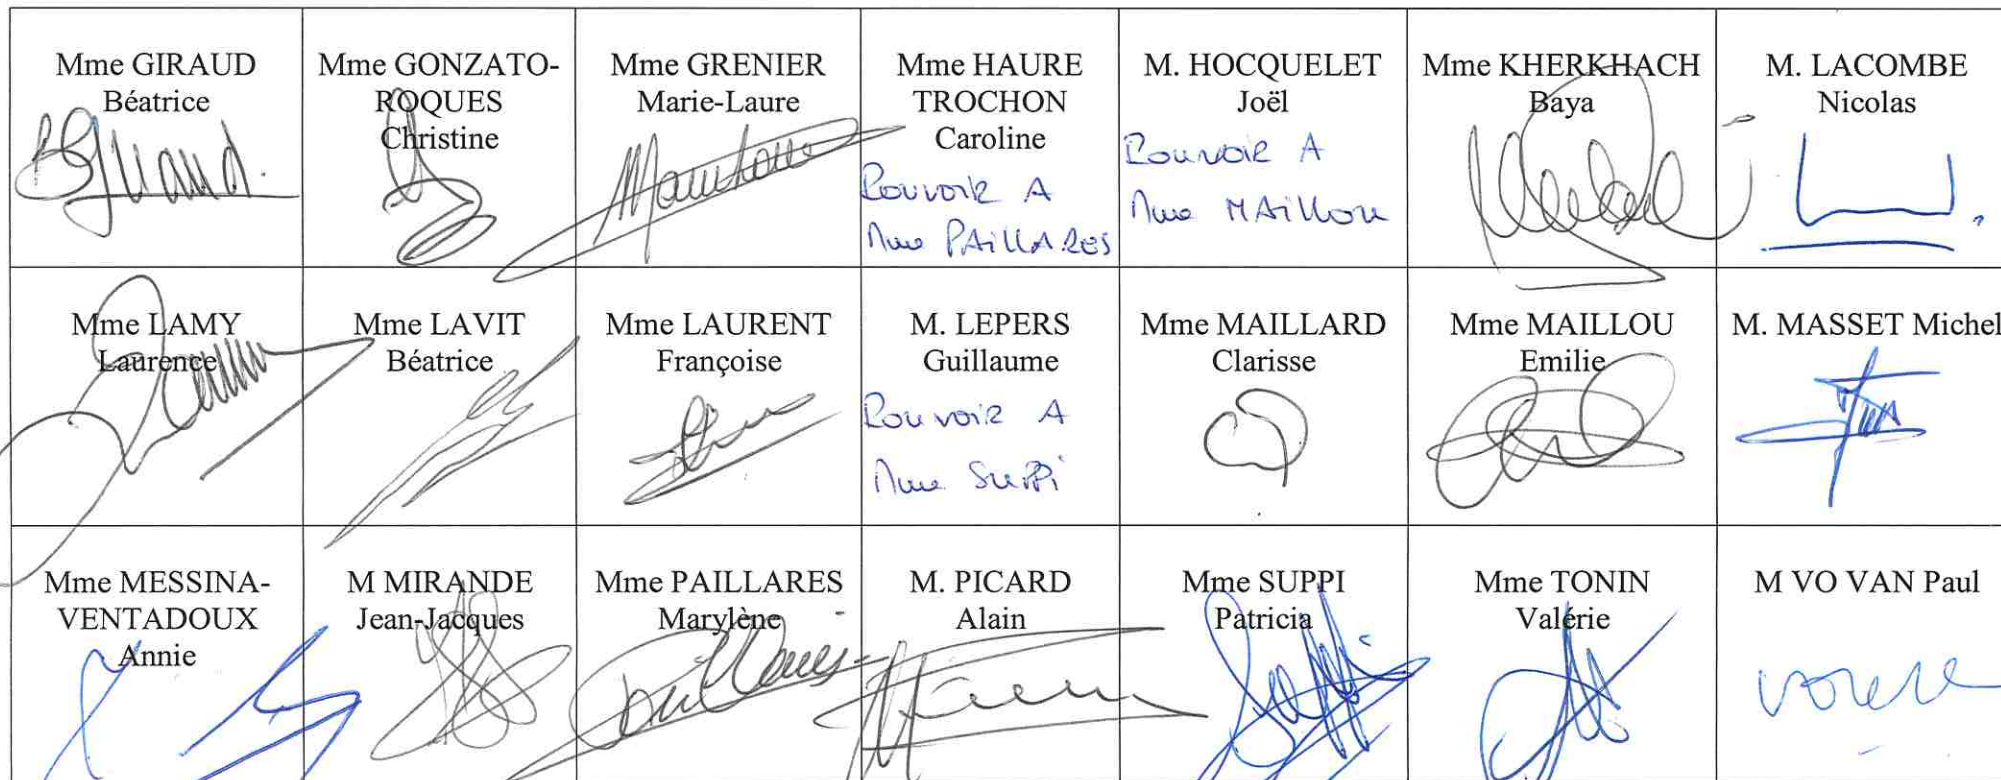 Mme GIRAUD
Béatrice
Mme GONZATO-
ROQUES
Christine
Mme GRENIER
Marie-Laure
Mme HAURE
TROCHON
Caroline
Pouvoir A
Mme PAILLARES
M. HOCQUELET
Joël
Pouvoir A
Mme MAillou
Mme KHERKHACH
Baya
M. LACOMBE
Nicolas
Mme LAMY
Laurence
Mme LAVIT
Béatrice
Mme LAURENT
Françoise
M. LEPERS
Guillaume
Pouvoir A
Mme SUPPi
Mme MAILLARD
Clarisse
Mme MAILLOU
Emilie
M. MASSET Michel
Mme MESSINA-
VENTADOUX
Annie
M MIRANDE
Jean-Jacques
Mme PAILLARES
Marylène
M. PICARD
Alain
Mme SUPPI
Patricia
Mme TONIN
Valérie
M VO VAN Paul